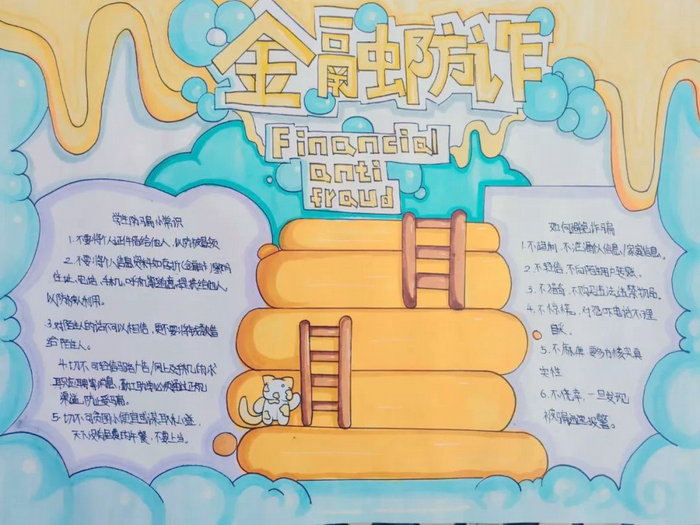 金融防诈
Financial
anti
fraud
学生防骗小常识
1.不要将个人证件借给他人,以防被冒领
2.不要将个人信息资料如存折(金融卡)密码
住址、电话、手机、呼机等随意提供给他人
以防被人利用。
3.对陌生人的话不可以轻信,更不要将钱款借
给陌生人。
4.切不可轻信
广告
渠道,防止受骗。
5.切不可贪图小便宜或谋取私利,
天下没有免费的午餐,不要上当。
如何避免诈骗
1.不
不泄漏个人信息/家庭信息。
2.不轻信,不向陌生账户转账。
3.不
不购买违法违禁物品。
4.不惊慌,对恐吓电话不理
睬。
5.不麻痹,要多方核实真
实性
6.不侥幸,一旦发现
被骗迅速报警。